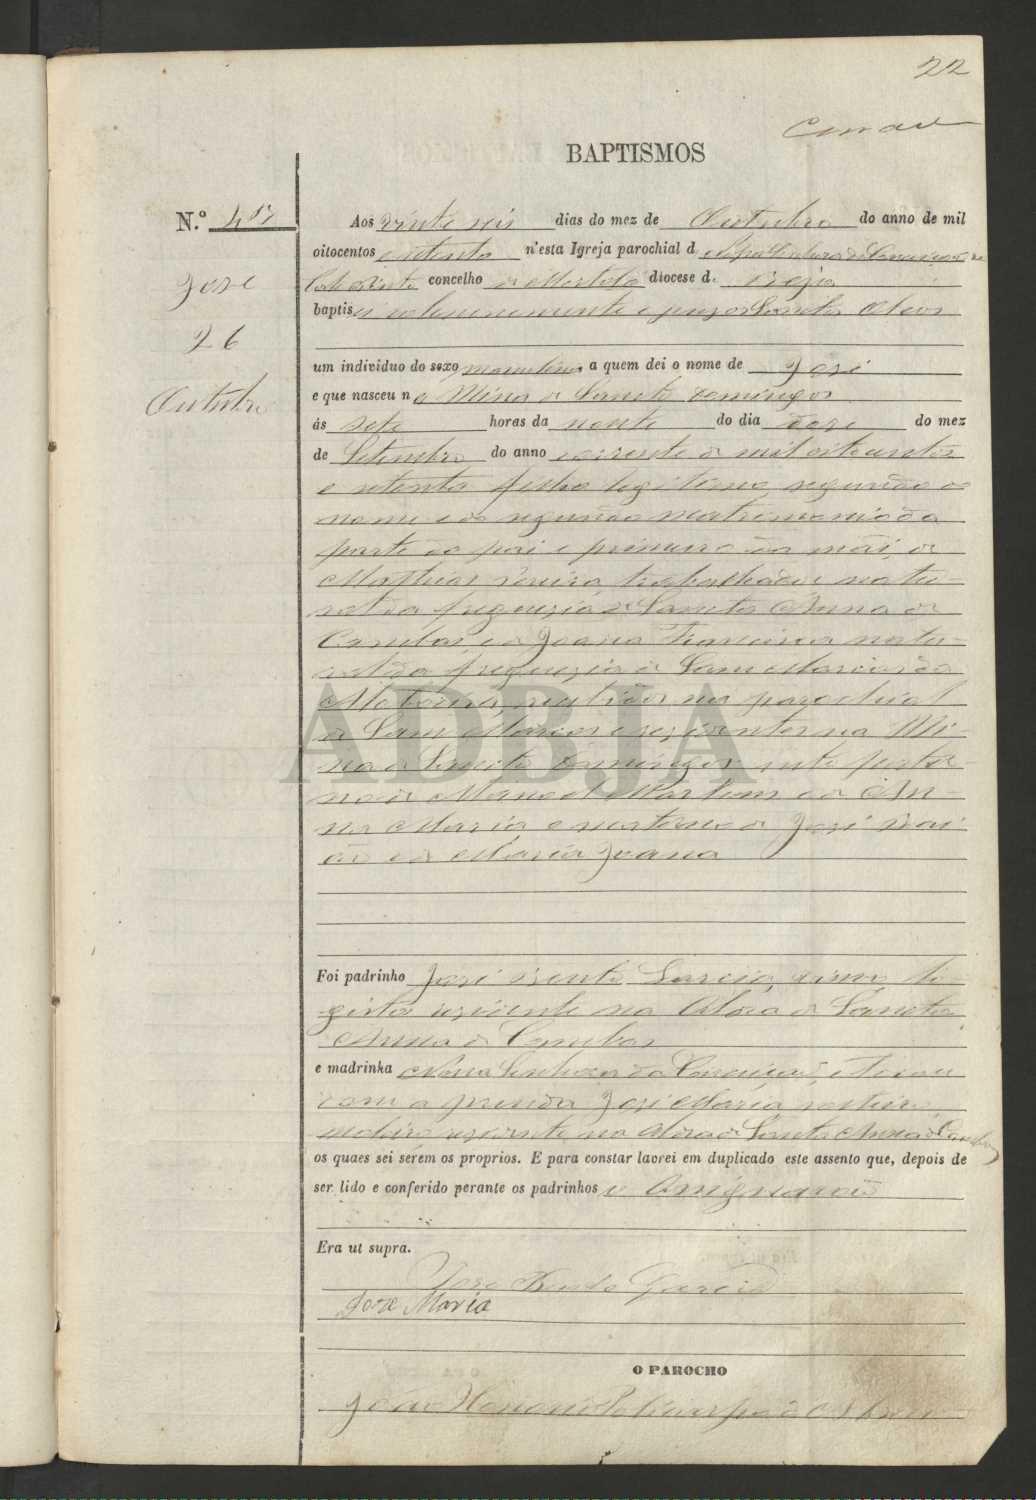 22
BAPTISMOS
N.º
José
26
Outubro
Aos vinte seis dias do mez de Outubro do anno de mil
oitocentos e setenta n'esta Igreja parochial d
concelho de Mertola diocese d. Beja
baptisei solemnemente e puz os Sanctos Oleos
um individuo do sexo masculino a quem dei o nome de José
e que nasceu na Mina de Sancto Domingos
ás sete horas da noute do dia doze do mez
de Setembro do anno corrente de mil oitocentos
e setenta filho legitimo segundo do
nome e do segundo matrimonio da
parte do pai e primeiro da mãi, de
Mathias Pereira trabalhador natu-
ral da freguezia de Sancta Anna de
Cambas e de Joana Francisca natu-
ral da freguezia de Sam Marcos da
Ataboeira, recebidos na parochial
de Sam Marcos e rezidentes na Mi-
na de Sancto Domingos, neto pater-
no de Manoel Martins e de An-
na Maria e materno de José
e de Maria Joana
Foi padrinho José Bento Garcia,
rezidente na Aldea de Sancta
Anna de Cambas
e madrinha Nossa Senhora da Conceição, e tocou
com a prenda José Maria, solteiro,
rezidente na Aldea de Sancta Anna de Cambas
os quaes sei serem os proprios. E para constar lavrei em duplicado este assento que, depois de
ser lido e conferido perante os padrinhos e assignarão
Era ut supra.
José Bento Garcia
Jose Maria
O PAROCHO
João
ADBJA